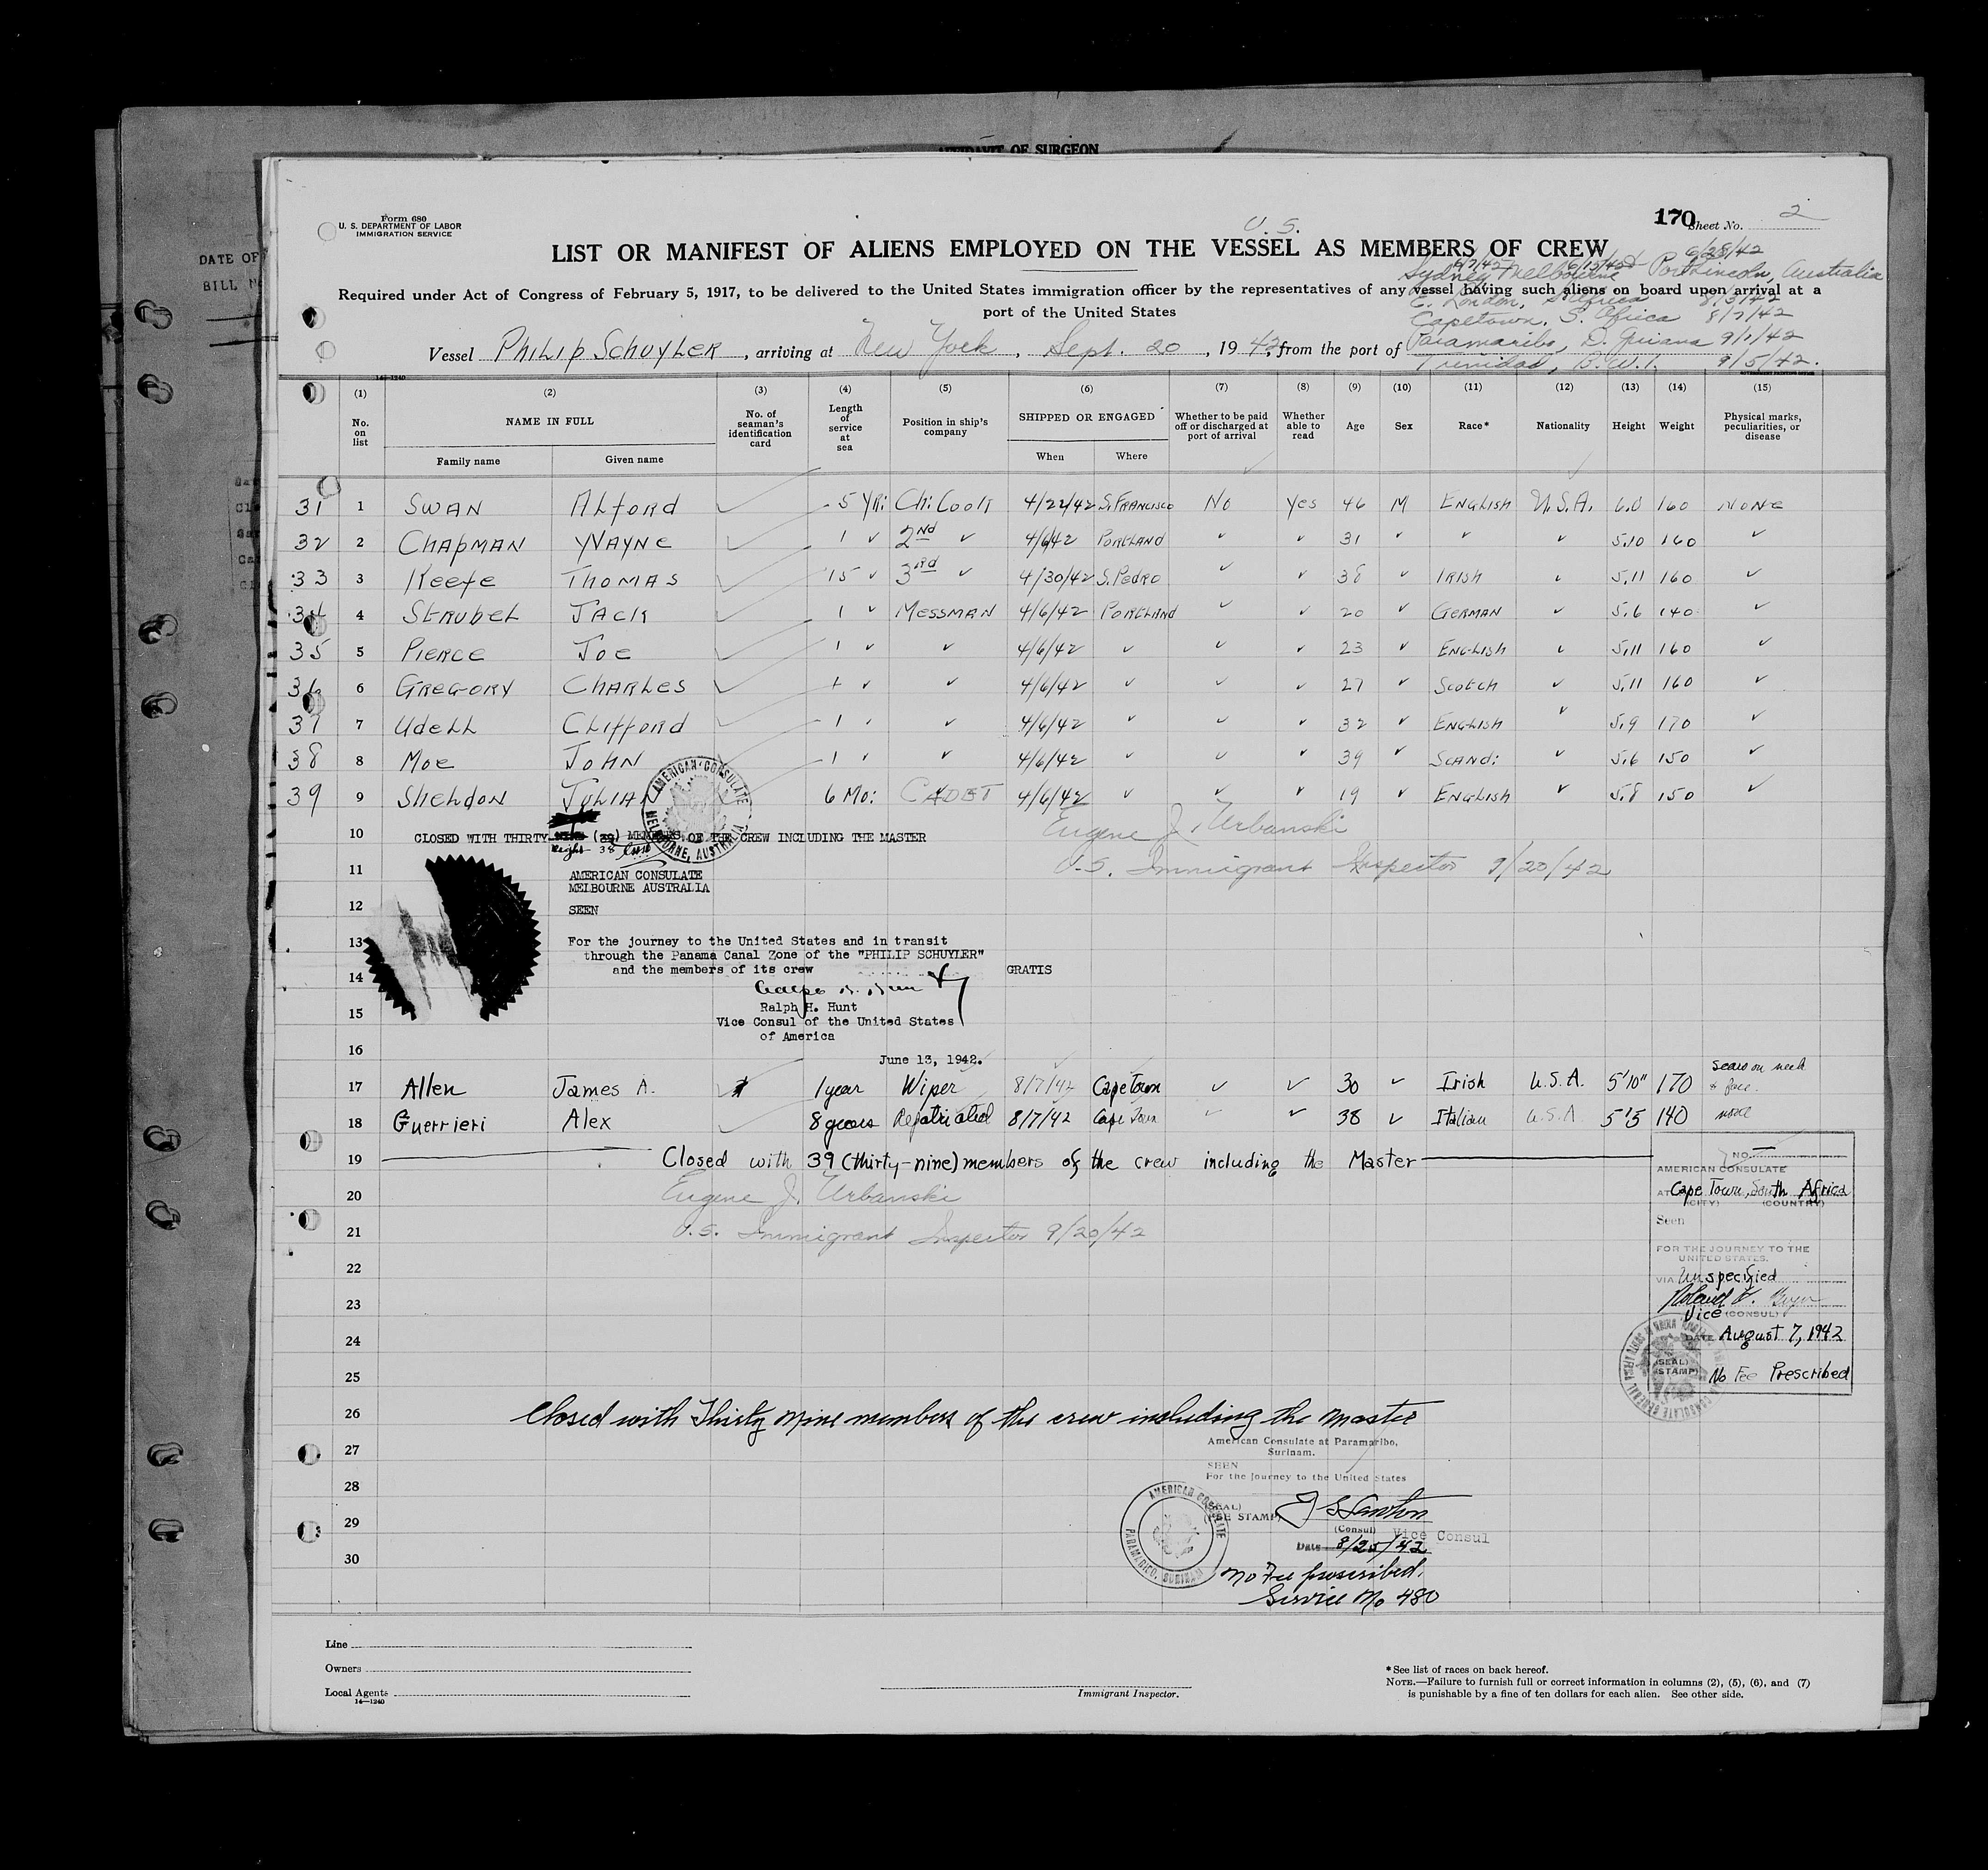 AFFIDAVIT OF SURGEON
DATE OF
BILL
Form 680
U. S. DEPARTMENT OF LABOR
IMMIGRATION SERVICE
U. S.
170 Sheet No. 2
LIST OR MANIFEST OF ALIENS EMPLOYED ON THE VESSEL AS MEMBERS OF CREW
6/28/42
Sydney 6/7/42 Melbourne 6/13/42 Port Lincoln, Australia
Required under Act of Congress of February 5, 1917, to be delivered to the United States immigration officer by the representatives of any vessel having such aliens on board upon arrival at a
port of the United States
E. London, S. Africa 8/3/42
Capetown, S. Africa 8/7/42
Vessel Philip Schuyler, arriving at New York, Sept. 20, 1942, from the port of Paramaribo, D. Guiana 9/1/42
Trinidad, B.W.I. 9/5/42.
14-1240
(1) (2) (3) (4) (5) (6) (7) (8) (9) (10) (11) (12) (13) (14) (15)
No. on list NAME IN FULL Family name Given name No. of seaman's identification card Length of service at sea Position in ship's company SHIPPED OR ENGAGED When Where Whether to be paid off or discharged at port of arrival Whether able to read Age Sex Race* Nationality Height Weight Physical marks, peculiarities, or disease
31 1 Swan Alford 5 yr: Ch: Cook 4/22/42 S. Francisco No Yes 46 M English U.S.A. 6.0 160 None
32 2 Chapman Wayne 1 ✓ 2nd ✓ 4/6/42 Portland ✓ ✓ 31 ✓ ✓ ✓ 5.10 160 ✓
33 3 Keefe Thomas 15 ✓ 3rd ✓ 4/30/42 S. Pedro ✓ ✓ 38 ✓ Irish ✓ 5.11 160 ✓
34 4 Strubel Jack 1 ✓ Messman 4/6/42 Portland ✓ ✓ 20 ✓ German ✓ 5.6 140 ✓
35 5 Pierce Joe 1 ✓ ✓ 4/6/42 ✓ ✓ ✓ 23 ✓ English ✓ 5.11 160 ✓
36 6 Gregory Charles 1 ✓ ✓ 4/6/42 ✓ ✓ ✓ 27 ✓ Scotch ✓ 5.11 160 ✓
37 7 Udell Clifford 1 ✓ ✓ 4/6/42 ✓ ✓ ✓ 32 ✓ English ✓ 5.9 170 ✓
38 8 Moe John 1 ✓ ✓ 4/6/42 ✓ ✓ ✓ 39 ✓ Scand: ✓ 5.6 150 ✓
39 9 Sheldon Julian 6 Mo: Cadet 4/6/42 ✓ ✓ ✓ 19 ✓ English ✓ 5.8 150 ✓
AMERICAN CONSULATE MELBOURNE, AUSTRALIA
10 CLOSED WITH THIRTY (39) MEMBERS OF THE CREW INCLUDING THE MASTER
eight 38
Eugene J. Urbanski
11 U.S. Immigrant Inspector 9/20/42
AMERICAN CONSULATE
MELBOURNE AUSTRALIA
12 SEEN
13 For the journey to the United States and in transit
through the Panama Canal Zone of the "PHILIP SCHUYLER"
14 and the members of its crew GRATIS
15 Ralph H. Hunt
Vice Consul of the United States
of America
16 June 13, 1942.
17 Allen James A. 1 year Wiper 8/7/42 Cape Town ✓ ✓ 30 ✓ Irish U.S.A. 5'10" 170 Scars on neck & face.
18 Guerrieri Alex 8 years Repatriated 8/7/42 Cape Town ✓ ✓ 38 ✓ Italian U.S.A. 5'5 140 none
19 Closed with 39 (thirty-nine) members of the crew including the Master
20 Eugene J. Urbanski
21 U.S. Immigrant Inspector 9/20/42
22
23
24
25
NO.
AMERICAN CONSULATE
AT Cape Town, South Africa
(CITY) (COUNTRY)
Seen
FOR THE JOURNEY TO THE
UNITED STATES.
VIA Unspecified
Vice (CONSUL)
DATE August 7, 1942
(SEAL)
(STAMP) No Fee Prescribed
26 Closed with Thirty Nine members of the crew including the Master
27 American Consulate at Paramaribo,
Surinam.
SEEN
28 For the Journey to the United States
AMERICAN CONSULATE PARAMARIBO, SURINAM
(SEAL)
29 (FEE STAMP)
(Consul) Vice Consul
30 Date 8/25/42
No Fee prescribed.
Service No 480
Line
Owners
Local Agents
14—1240
Immigrant Inspector.
*See list of races on back hereof.
NOTE.—Failure to furnish full or correct information in columns (2), (5), (6), and (7)
is punishable by a fine of ten dollars for each alien. See other side.